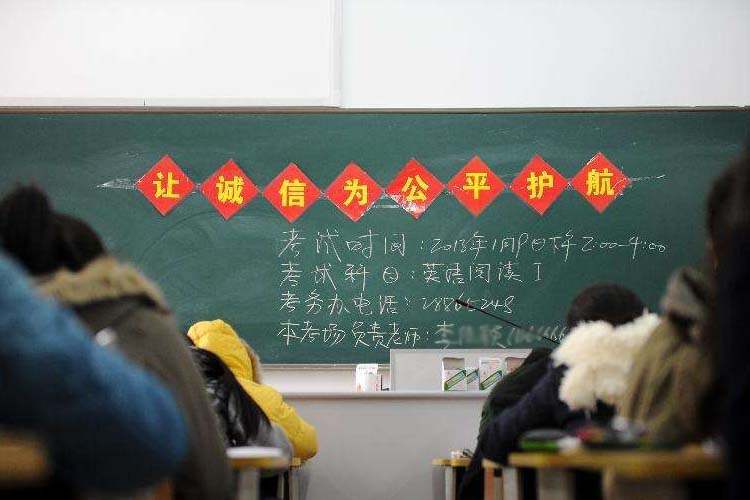 让诚信为公平护航
考试时间：2013年1月9日下午2:00-4:00
考试科目：英语阅读 I
考务办电话：28865248
本考场负责老师：李